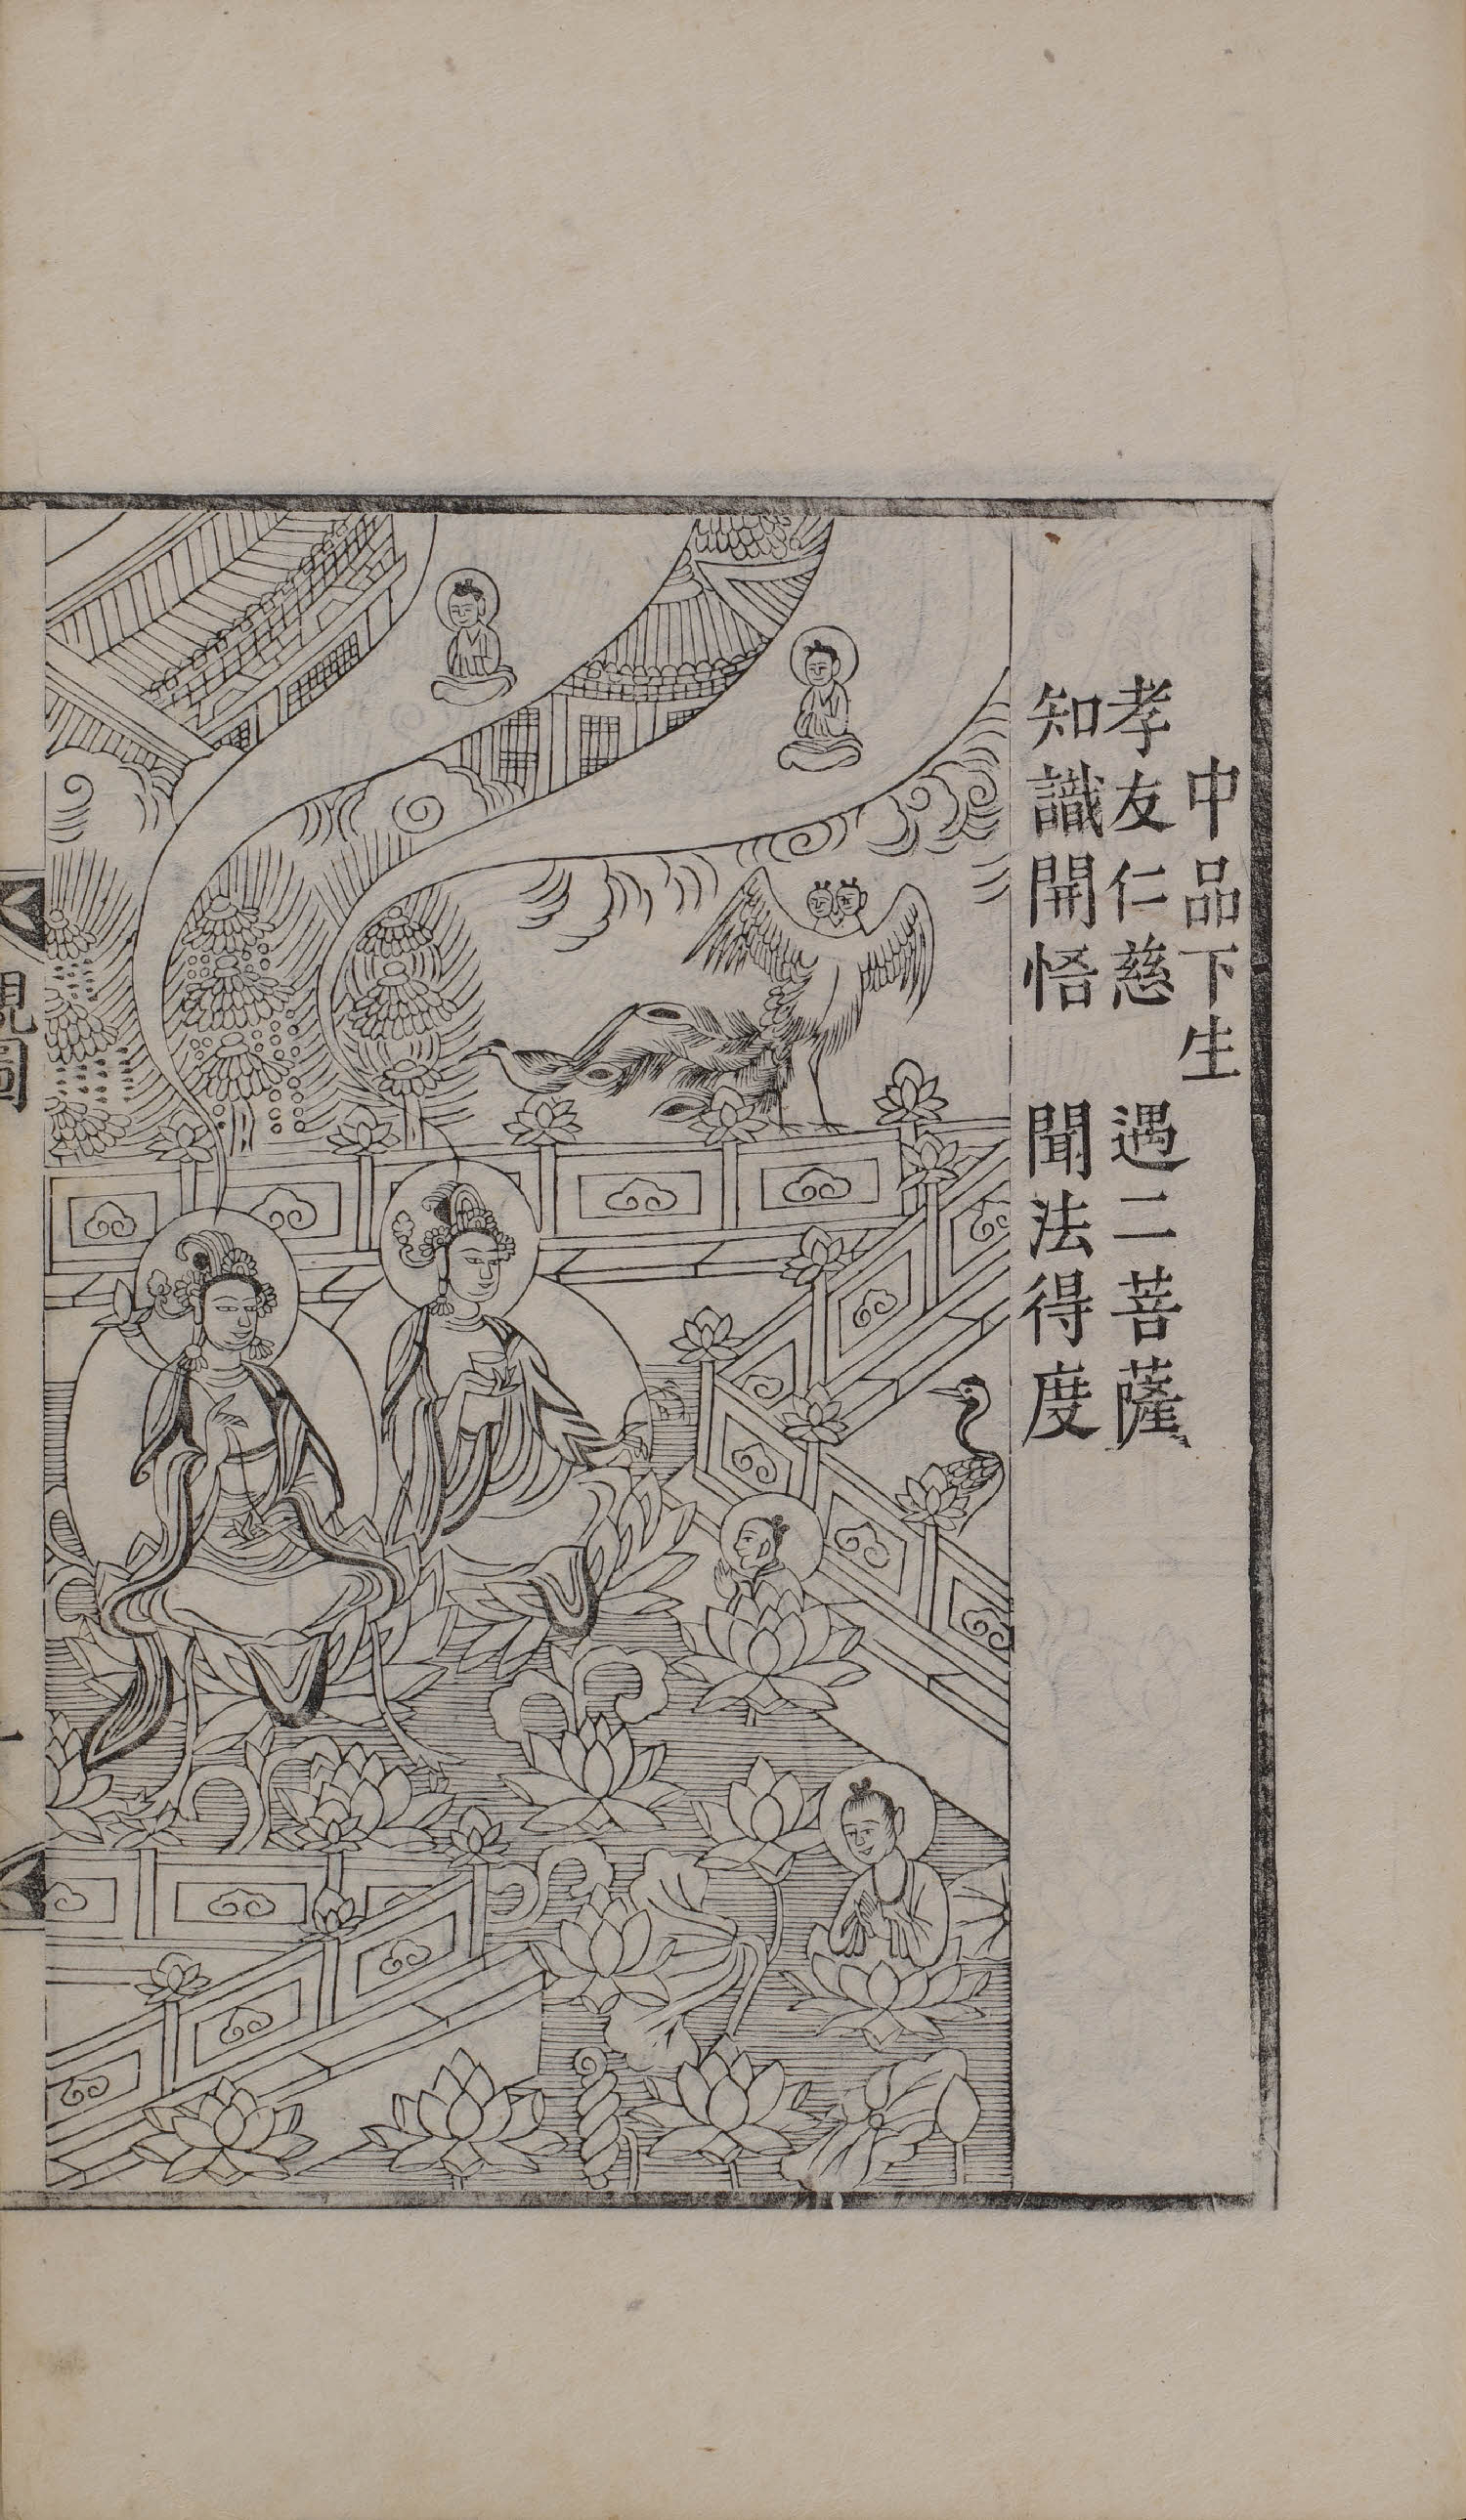 中品下生
孝友仁慈　遇二菩薩
知識開悟　聞法得度
觀圖